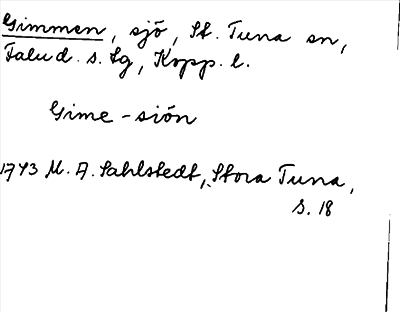 Gimmen, sjö, St. Tuna sn,
Falu d. s. lg, Kopp. l.
Gime-siön
1743 M. A. Sahlstedt, Stora Tuna,
s. 18